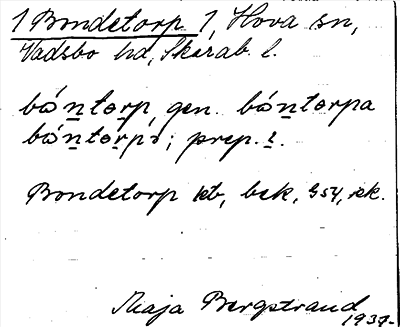 1 Bondetorp 1, Hova sn,
Vadsbo hd, Skarab. l.
bóntorp, gen. bóntorpa
bóntorps; prep. i.
Bondetorp kb, bek, GSK, rk.
Maja Bergstrand
1937-